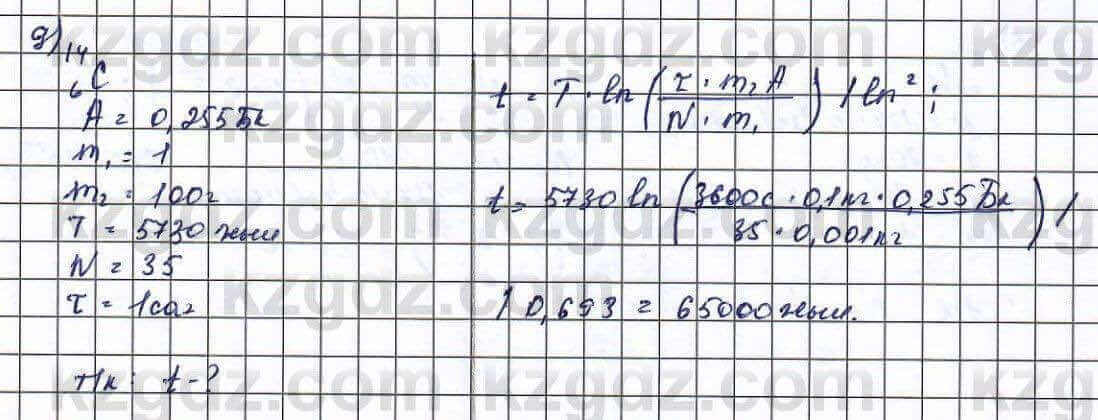 g) ¹⁴₆C
A = 0,255Бк
m₁ = 1
m₂ = 100г
T = 5730 жыл
N = 35
τ = 1сағ
Т/к: t - ?
t = T · ln (τ · m₂ A / N · m₁) / ln²;
t = 5730 ln (3600с · 0,1кг · 0,255Бк / 35 · 0,001кг) /
/ 0,693 = 65000 жыл.
kzgdz.com